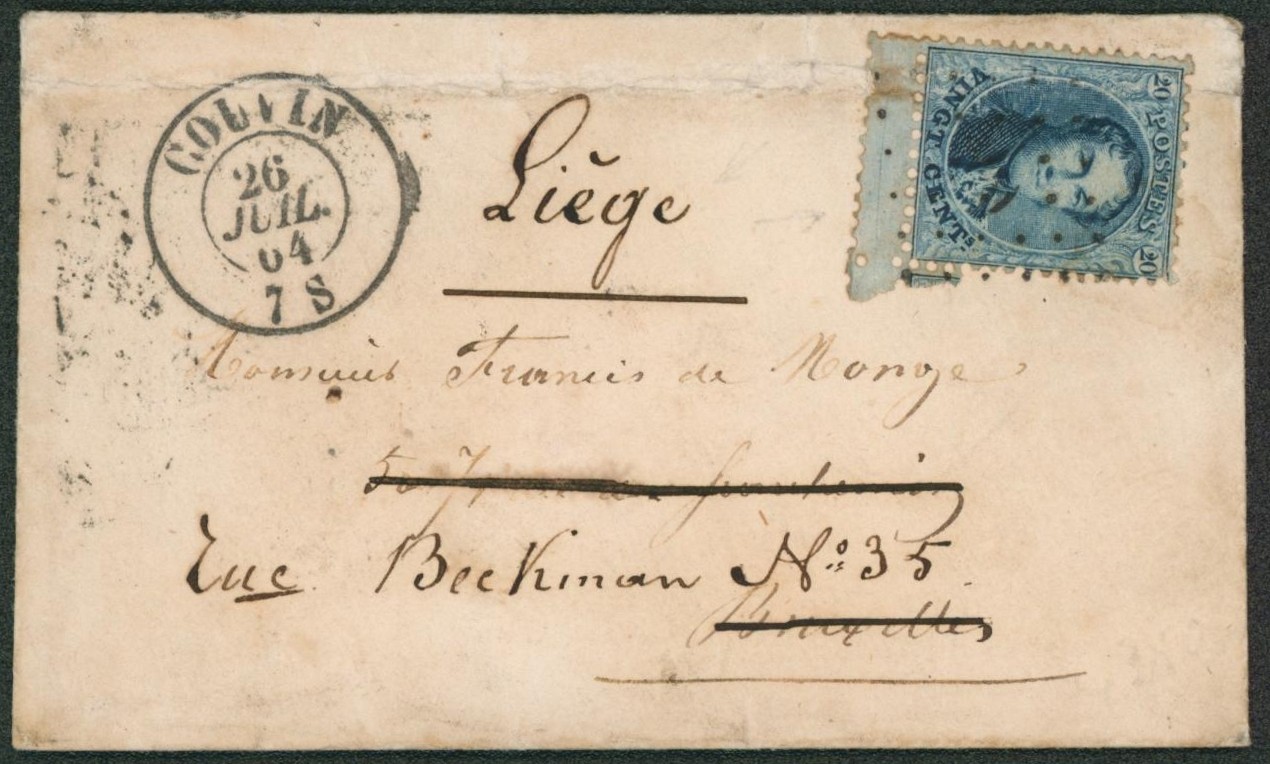 COUVIN
26
JUIL.
64
7 S
POSTES
20 20
VINGT CENTs.
Liège
Monsieur Francis de Monge
Rue Beekman No 35
Bruxelles